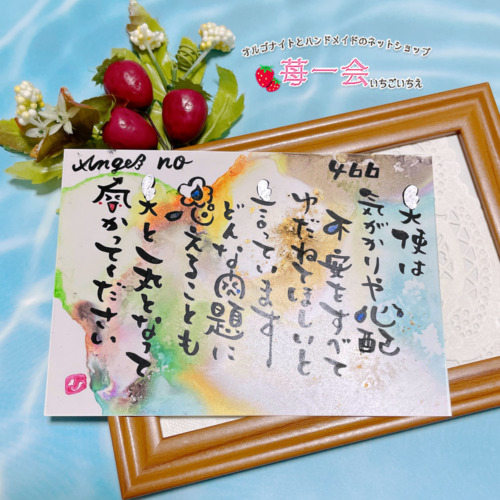 オルゴナイトとハンドメイドのネットショップ
苺一会 いちごいちえ
Angel no 466
天使は
気がかりや心配
不安をすべて
ゆだねてほしいと
言っています
どんな問題に
思えることも
天と一丸となって
向かってください